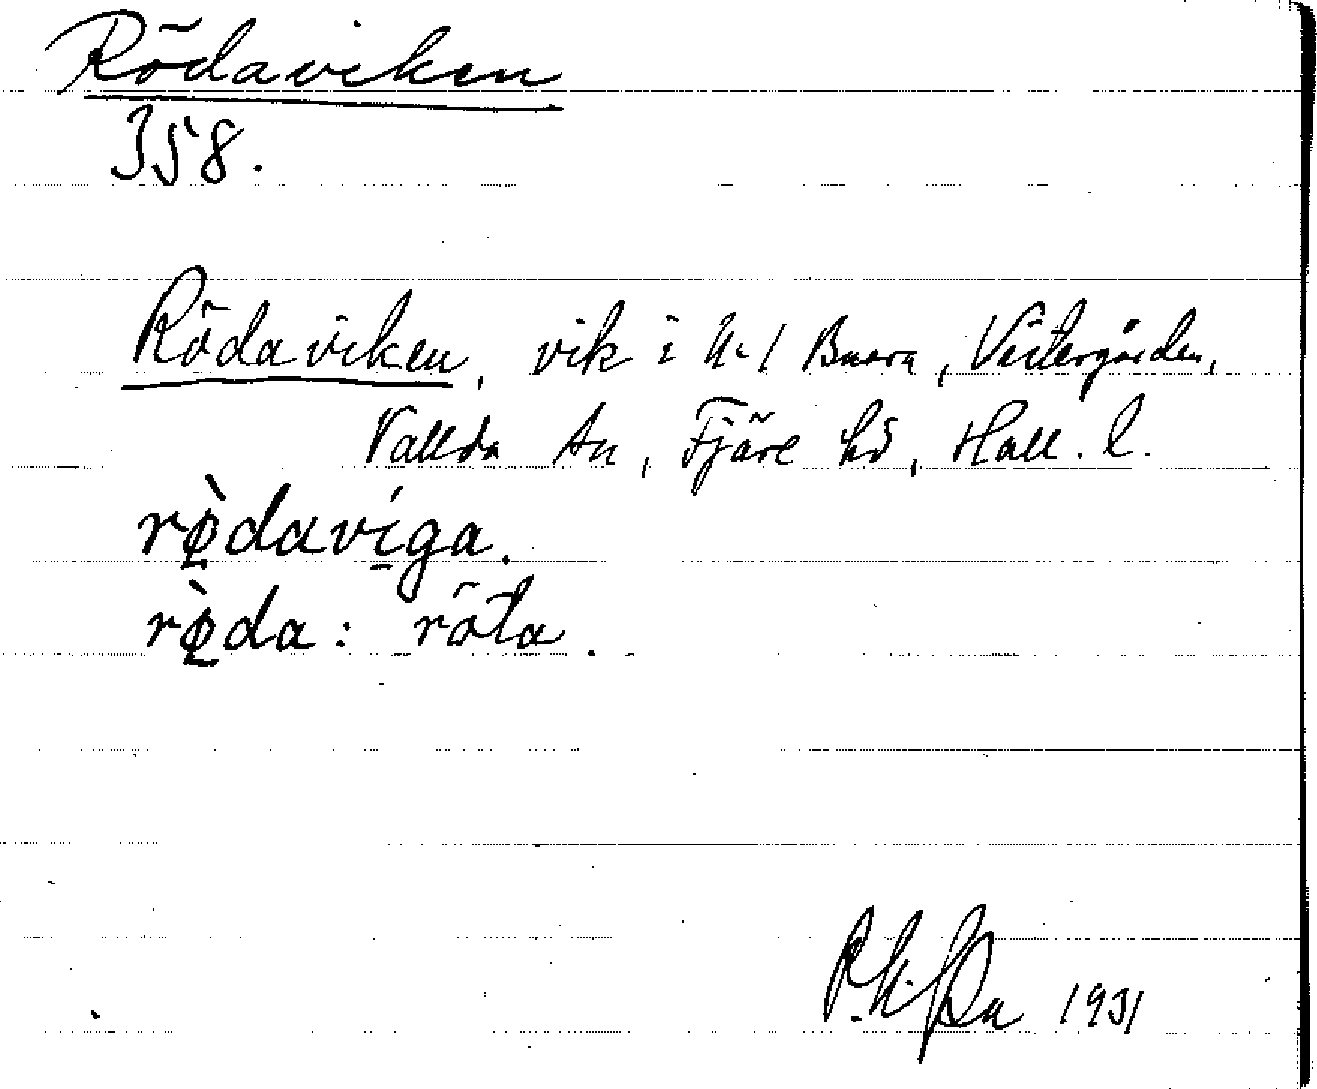 Rödaviken
358.
Rödaviken, vik i N:1 Buera, Västergården,
Vallda sn, Fjäre hd, Hall. l.
rø̀daviga.
rø̀da: röta.
1931